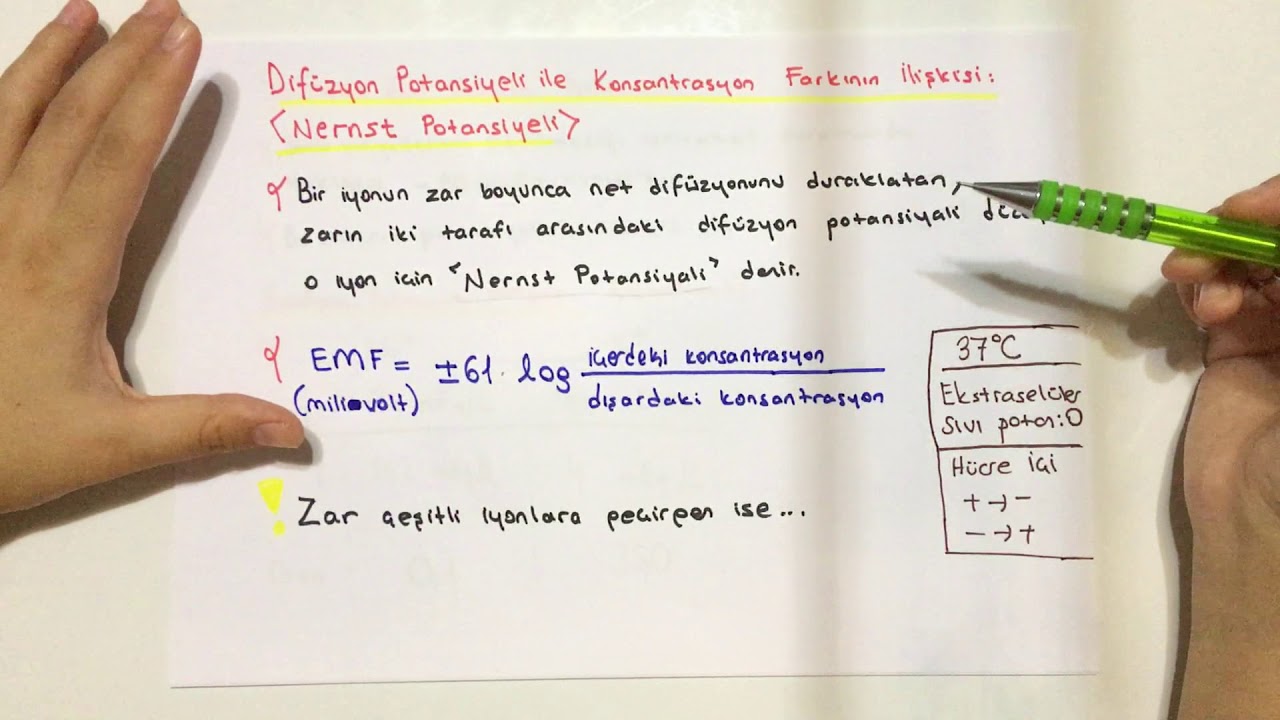 Difüzyon Potansiyeli ile Konsantrasyon Farkının İlişkisi:
<Nernst Potansiyeli>
Bir iyonun zar boyunca net difüzyonunu duraklatan,
zarın iki tarafı arasındaki difüzyon potansiyali
o iyon için "Nernst Potansiyali" denir.
EMF = ±61. log içerdeki konsantrasyon
(milivolt) dışardaki konsantrasyon
! Zar çeşitli iyonlara geçirgen ise...
37°C
Ekstraselüler
sıvı potan:0
Hücre İçi
+ → -
- → +